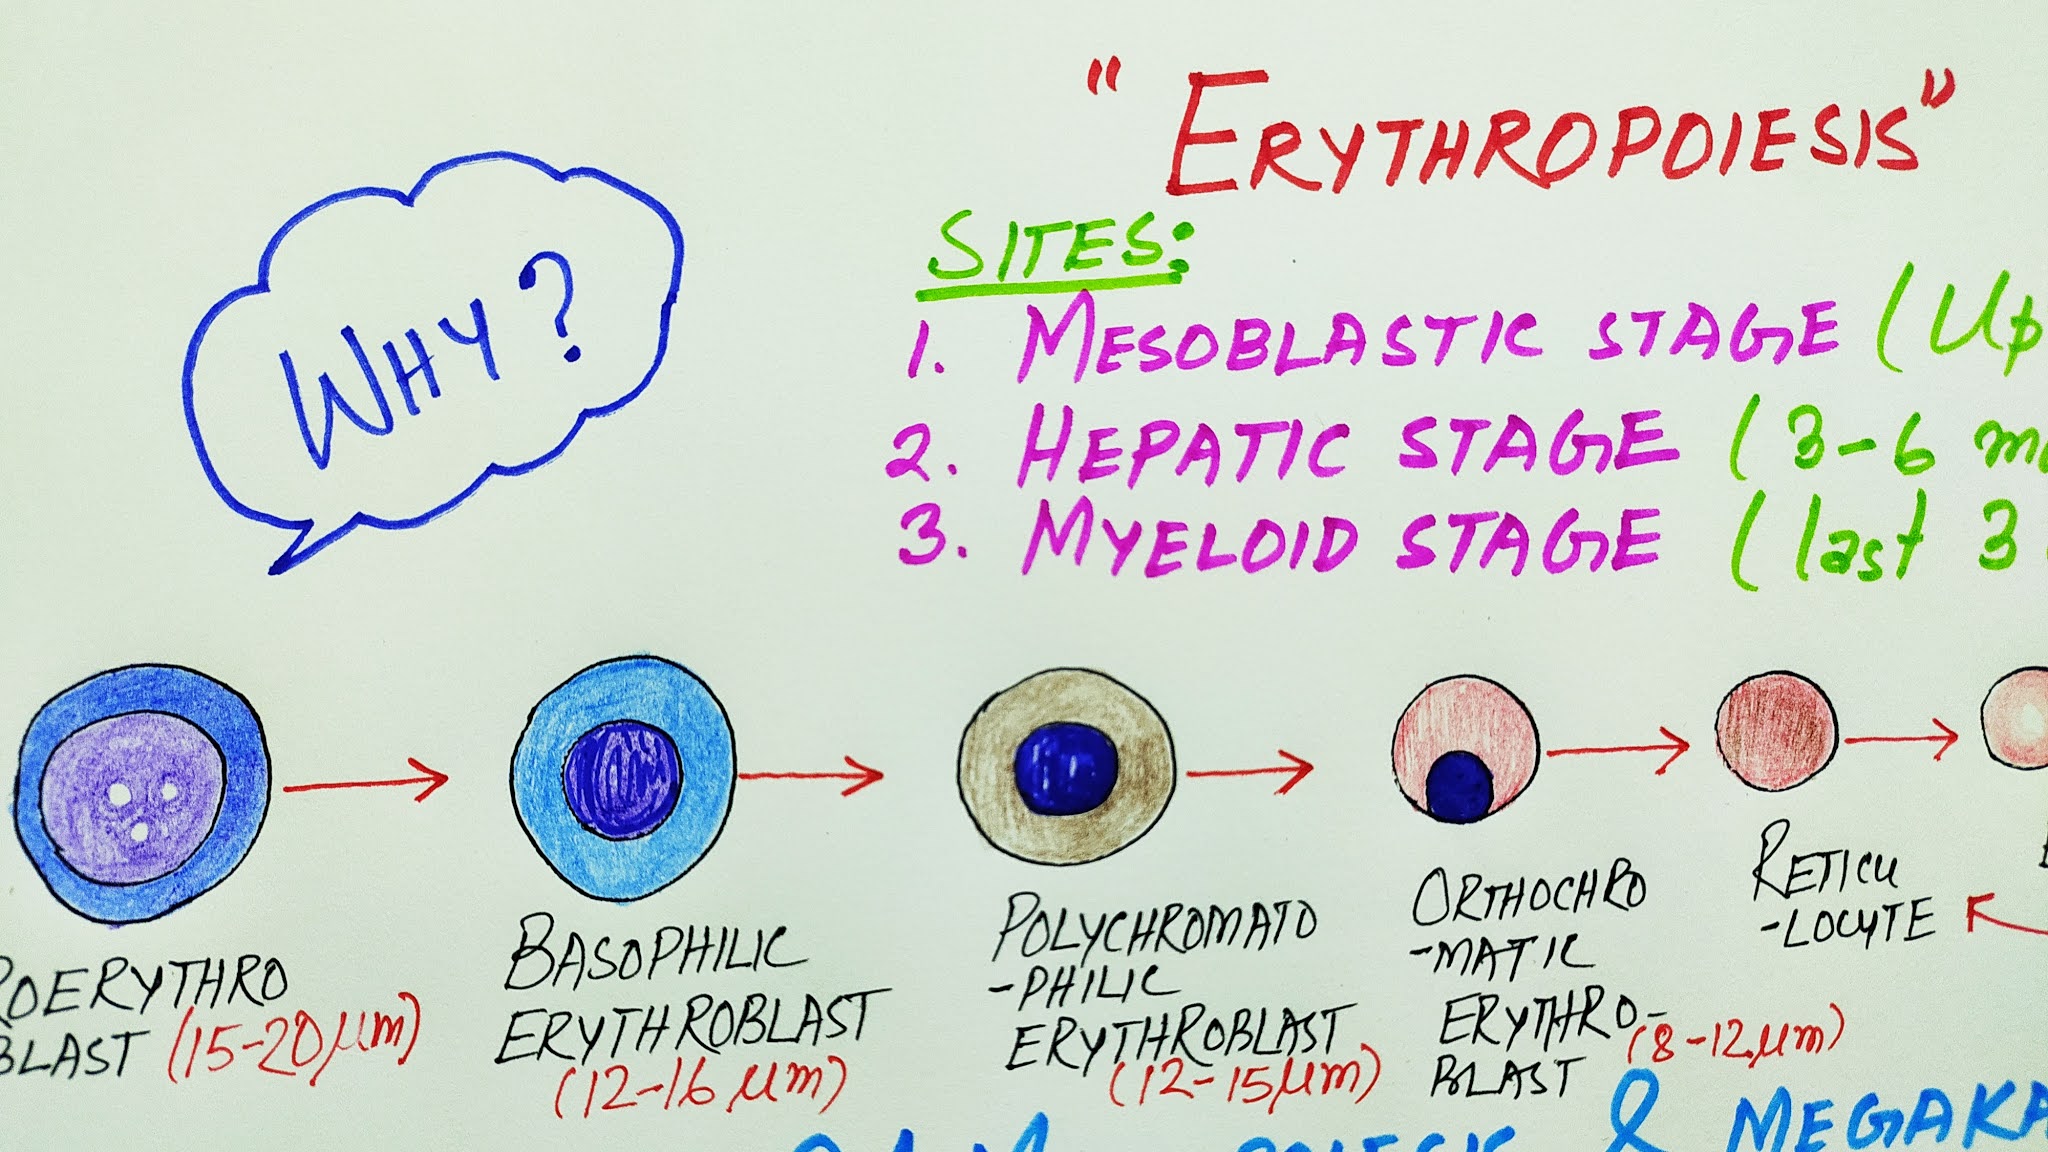 " ERYTHROPOIESIS"
WHY?
SITES:
1. MESOBLASTIC STAGE (Up
2. HEPATIC STAGE (3-6 m
3. MYELOID STAGE (last 3
ROERYTHRO
BLAST (15-20 µm)
BASOPHILIC
ERYTHROBLAST
(12-16 µm)
POLYCHROMATO
-PHILIC
ERYTHROBLAST
(12-15 µm)
ORTHOCHRO
-MATIC
ERYTHRO-
BLAST (8-12 µm)
RETICU
-LOCYTE
& MEGAKA